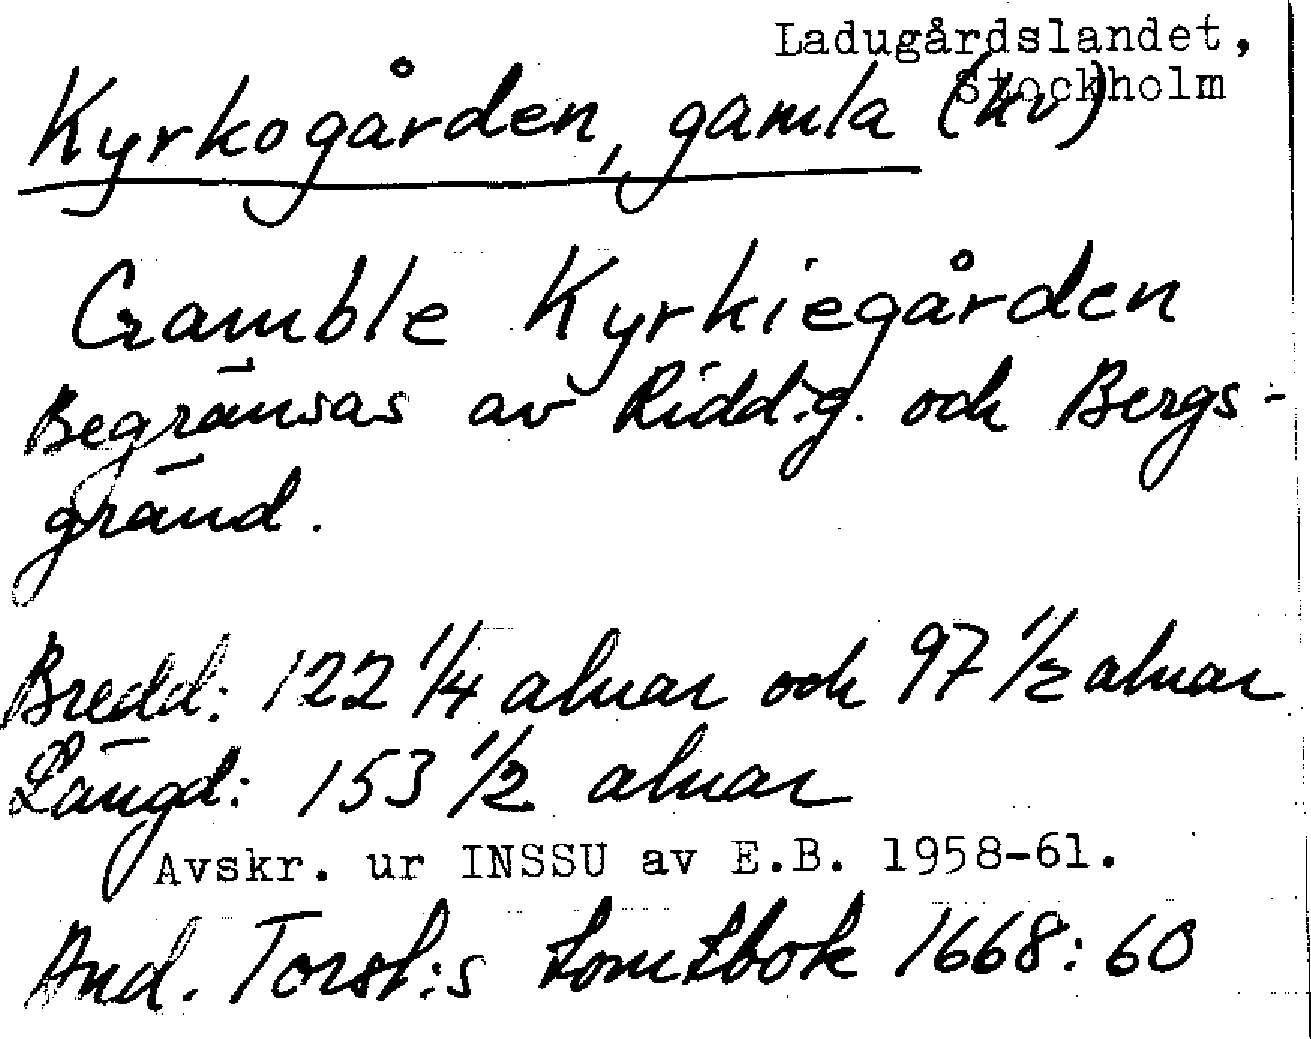 Ladugårdslandet,
Stockholm
Kyrkogården, gamla (kv)
Gamble Kyrkiegården
Begränsas av Ridd.g. och Bergs-
gränd.
Bredd: 122 1/4 alnar och 97 1/2 alnar
Längd: 153 1/2 alnar
Avskr. ur INSSU av E.B. 1958-61.
And. Torst:s tomtbok 1668: 60